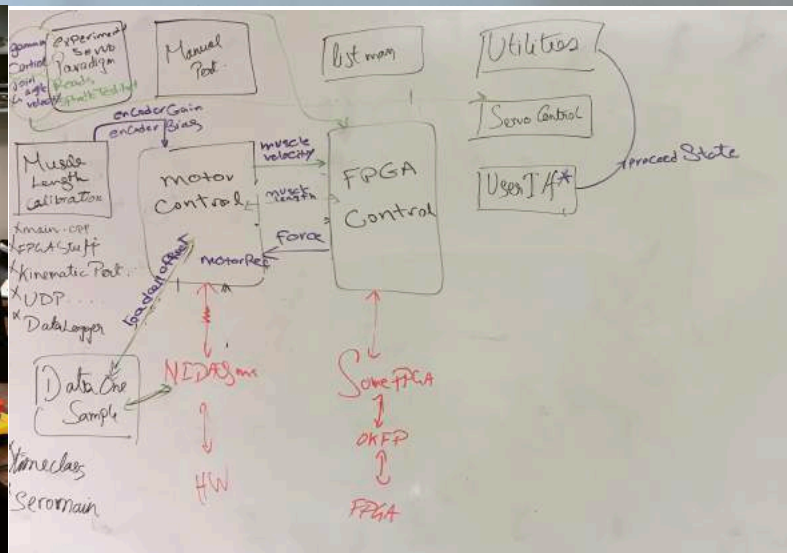 gamma
Control
Joint
angle
velocity
experiment
Servo
Paradigm
Reads
Manual
Port.
list man
Utilities
Servo Control
User I/f*
proceed State
encoder Gain
encoder Bias
Muscle
Length
Calibration
motor
Control
motorRef
muscle
velocity
muscle
length
Force
FPGA
Control
xmain.cpp
FPGA Stuff
Kinematic Port.
xUDP....
xDataLogger
loadcelloffset
Data One
Sample
HW
Some FPGA
OKFP
FPGA
timeclass
Seromain